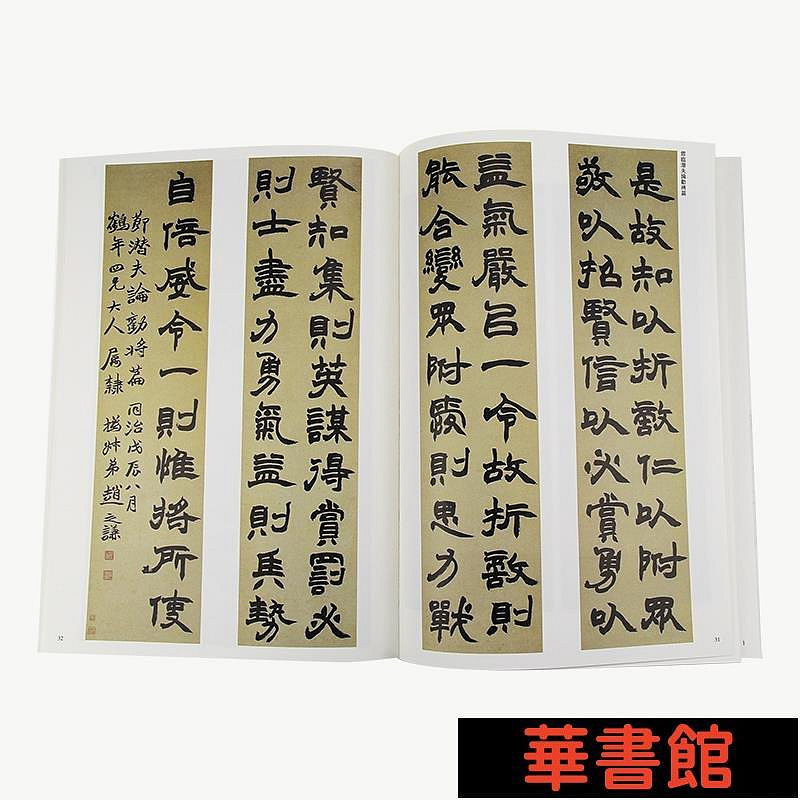 是故知以折敵仁以附眾
敬以招賢信以必賞勇以
益氣嚴以一令故折敵則
能合變眾附愛則思力戰
31
賢知集則英謀得賞罰必
則士盡力勇氣益則兵勢
自倍威令一則惟將所使
節潛夫論勸將篇 同治戊辰八月
鶴年四兄大人屬隸 撝叔弟趙之謙
32
華書館